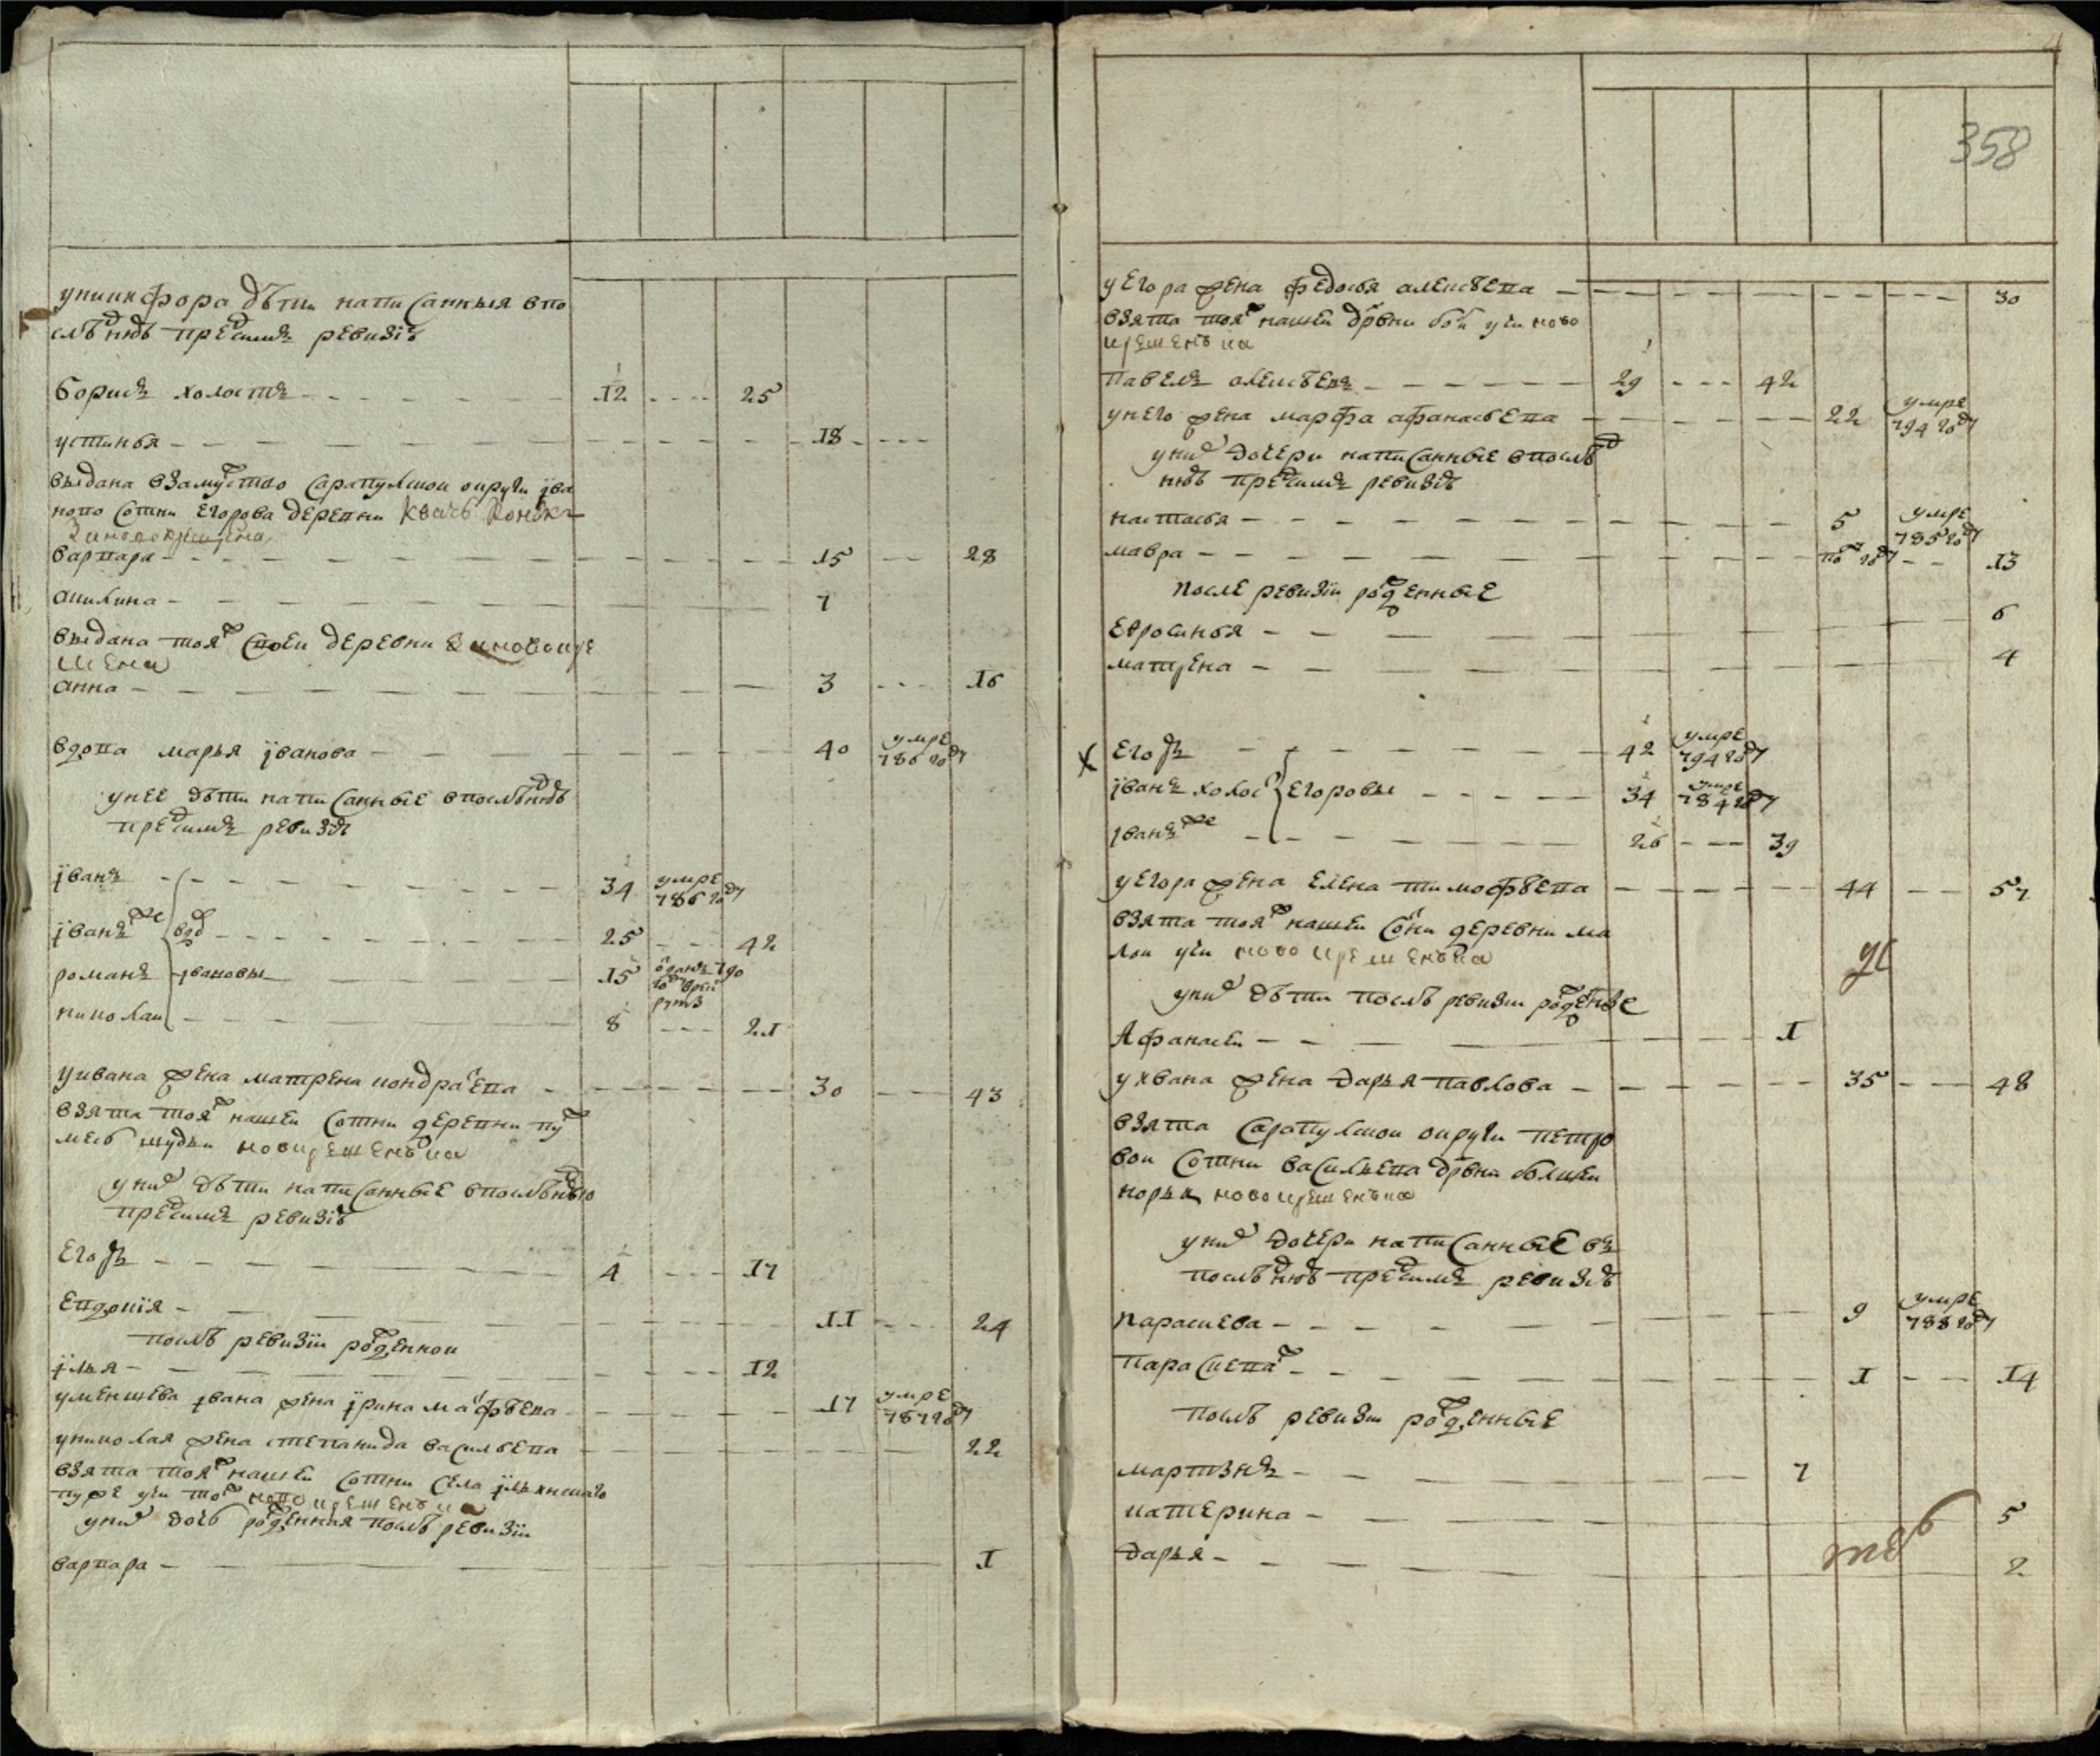 у никифора дѣти написанныя в по
слѣднюю пред симъ ревизiю
борисъ холостъ 12 25
устинья 18
выдана в замужство сарапулской округи ива
ново сотни егорова деревни
варвара 15 28
акилина 7
выдана тояж своей деревни за новокре
щена
анна 3 16
вдова марья їванова 40 умре 786 году
у нее дѣти написанные в послѣднюю
пред симъ ревизiю
їванъ 34 умре 786 году
їванъ же вдов 25 42
романъ ивановы 15 отданъ 790 году в рекруты
николай 8 21
у ивана жена матрена кондратева 30 43
взята тояж нашей сотни деревни
новокрещенъка
у них дѣти написанные в послѣднюю
пред симъ ревизiю
егоръ 4 17
евдокїя 11 24
послѣ ревизїи рожденной
їлья 12
у меншева ївана жена їрина матфѣева 17 умре 787 году
у николая жена степанида василѣева 22
взята тояж нашей сотни села їльинскаго
новокрещенъка
у них дочь рожденная послѣ ревизїи
варвара 1
358
у егора жена федосья алексѣева 30
взята тояж нашей дрвни ново
крещенъка
павелъ алексѣевъ 29 42
у него жена марфа афанасьева 22 умре 794 году
у них дочери написанные в послѣд
нюю пред симъ ревизiю
настасья 5 умре 785 году
мавра полгоду 13
после ревизїи рожденные
евросинья 6
матрена 4
х егоръ 42 умре 794 году
їванъ холост егоровы 34 умре 784 году
їванъ же 26 39
у егора жена елена тимофѣева 44 57
взята тояж нашей сотни деревни ма
лой новокрещенъка
у них дѣти послѣ ревизїи рожденные
Афанасей 1
у ивана жена дарья павлова 35 48
взята сарапулской округи петро
вой сотни василѣева дрвни
норьи новокрещенъка
у них дочери написанные въ
послѣднюю пред симъ ревизiю
параскева 9 умре 788 году
параскева ж 1 14
послѣ ревизїи рожденные
мартынъ 7
катерина 5
дарья 2